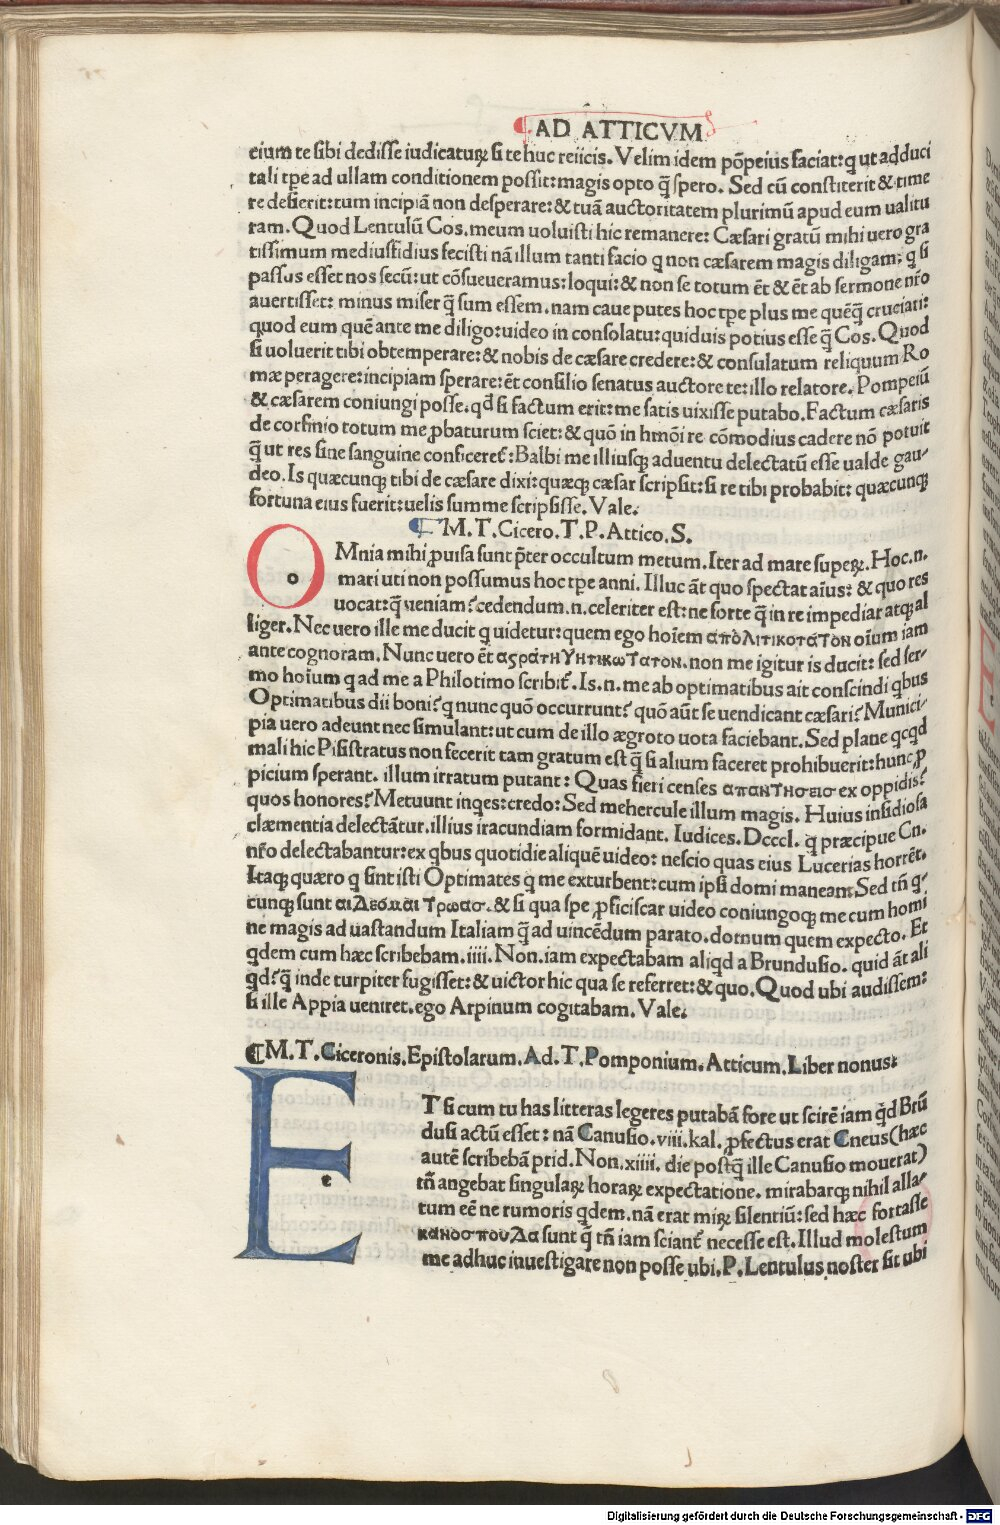 AD ATTICVM
eium te sibi dedisse iudicaturꝝ si te huc reiicis. Velim idem põpeius faciat: q ut adduci
tali tp̃e ad ullam conditionem possit: magis opto q̃ spero. Sed cũ constiterit & time
re desierit: tum incipiã non desperare: & tuã auctoritatem plurimũ apud eum ualitu
ram. Quod Lentulũ Cos. meum uoluisti hic remanere: Cæsari gratũ mihi uero gra
tissimum mediusfidius fecisti nã illum tanti facio q non cæsarem magis diligam; q si
passus esset nos secũ: ut cõsueueramus: loqui: & non se totum ẽt & ẽt ab sermone nr̃o
auertisset: minus miser q̃ sum essem. nam caue putes hoc tp̃e plus me quẽq̃ cruciari:
quod eum quẽ ante me diligo: uideo in consolatu: quiduis potius esse q̃ Cos. Quod
si uoluerit tibi obtemperare: & nobis de cæsare credere: & consulatum reliquum Ro
mæ peragere: incipiam sperare: ẽt consilio senatus auctore te: illo relatore. Pompeiũ
& cæsarem coniungi posse. qd̃ si factum erit: me satis uixisse putabo. Factum cæsaris
de corfinio totum me ꝓbaturum sciet: & quõ in hmõi re cõmodius cadere nõ potuit
q̃ ut res sine sanguine conficeret̃: Balbi me illiusqꝫ aduentu delectatũ esse ualde gau-
deo. Is quæcunqꝫ tibi de cæsare dixi: quæqꝫ cæsar scripsit: si re tibi probabit: quæcunqꝫ
fortuna eius fuerit: uelis summe scripsisse. Vale.
M. T. Cicero. T. P. Attico. S.
O
o
MNia mihi ꝓuisa sunt p̃ter occultum metum. Iter ad mare supeꝝ. Hoc. n.
mari uti non possumus hoc tp̃e anni. Illuc ãt quo spectat aĩus: & quo res
uocat: q̃ ueniam? cedendum. n. celeriter est: ne forte q̃ in re impediar atqꝫ al
liger. Nec uero ille me ducit q uidetur: quem ego hoĩem απολιτικοτατον oĩum iam
ante cognoram. Nunc uero ẽt αςρατηγητικωτατον. non me igitur is ducit: sed ser-
mo hoĩum q ad me a Philotimo scribit̃. Is. n. me ab optimatibus ait conscindi qbus
Optimatibus dii boni? q nunc quõ occurrunt? quõ aũt se uendicant cæsari? Munici-
pia uero adeunt nec simulant: ut cum de illo ægroto uota faciebant. Sed plane qcqd
mali hic Pisistratus non fecerit tam gratum est q̃ si alium faceret prohibuerit: hunc ꝓ
picium sperant. illum irratum putant: Quas fieri censes απαντησεισ ex oppidis?
quos honores? Metuunt inqes: credo: Sed mehercule illum magis. Huius insidiosa
clæmentia delectãtur. illius iracundiam formidant. Iudices. Dcccl. q præcipue Cn.
nr̃o delectabantur: ex qbus quotidie aliquẽ uideo: nescio quas eius Lucerias horrẽt.
Itaqꝫ quæro q sint isti Optimates q me exturbent: cum ipsi domi maneant. Sed tñ q-
cunqꝫ sunt αιδεομαι τρωασ. & si qua spe ꝓficiscar uideo coniungoqꝫ me cum homi
ne magis ad uastandum Italiam q̃ ad uincẽdum parato. domum quem expecto. Et
qdem cum hæc scribebam. iiii. Non. iam expectabam aliqd a Brundusio. quid ãt ali
qd? q̃ inde turpiter fugisset: & uictor hic qua se referret: & quo. Quod ubi audissem:
si ille Appia ueniret. ego Arpinum cogitabam. Vale.
M. T. Ciceronis. Epistolarum. Ad. T. Pomponium. Atticum. Liber nonus:
E
e
T si cum tu has litteras legeres putabã fore ut scirẽ iam q̃d Brũ
dusi actũ esset: nã Canusio. viii. kal. ꝓfectus erat Cneus (hæc
autẽ scribebã prid. Non. xiiii. die postq̃ ille Canusio mouerat)
tñ angebat singulaꝝ horaꝝ expectatione. mirabarqꝫ nihil alla-
tum eẽ ne rumoris qdem. nã erat miꝝ silentiũ: sed hæc fortasse
κενοσπουδα sunt q̃ tñ iam sciant̃ necesse est. Illud molestum
me adhuc inuestigare non posse ubi. P. Lentulus noster sit ubi
Digitalisierung gefördert durch die Deutsche Forschungsgemeinschaft - DFG